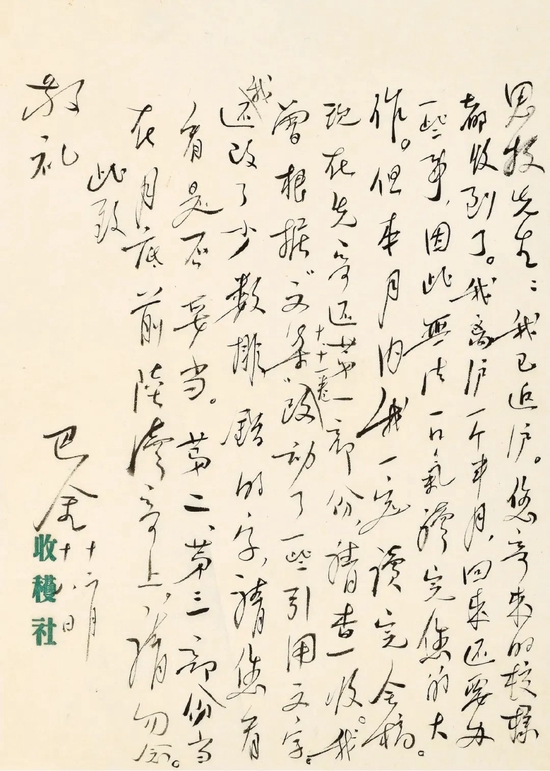 思牧先生：我已返沪。您寄来的校樣
都收到了。我离沪一个半月，回来还要办
一些事，因此無法一口氣讀完您的大
作。但本月内我一定读完全稿。
现在先寄还第一部份，请查收。我
曾根据“文集”十、十一卷改动了一些引用文字。
我还改了少数排错的字，请您看
看是否妥当。第二、第三部份当
在月底前陆續寄上，请勿念。
此致
敬礼
巴金
十二月
十八日
收穫社